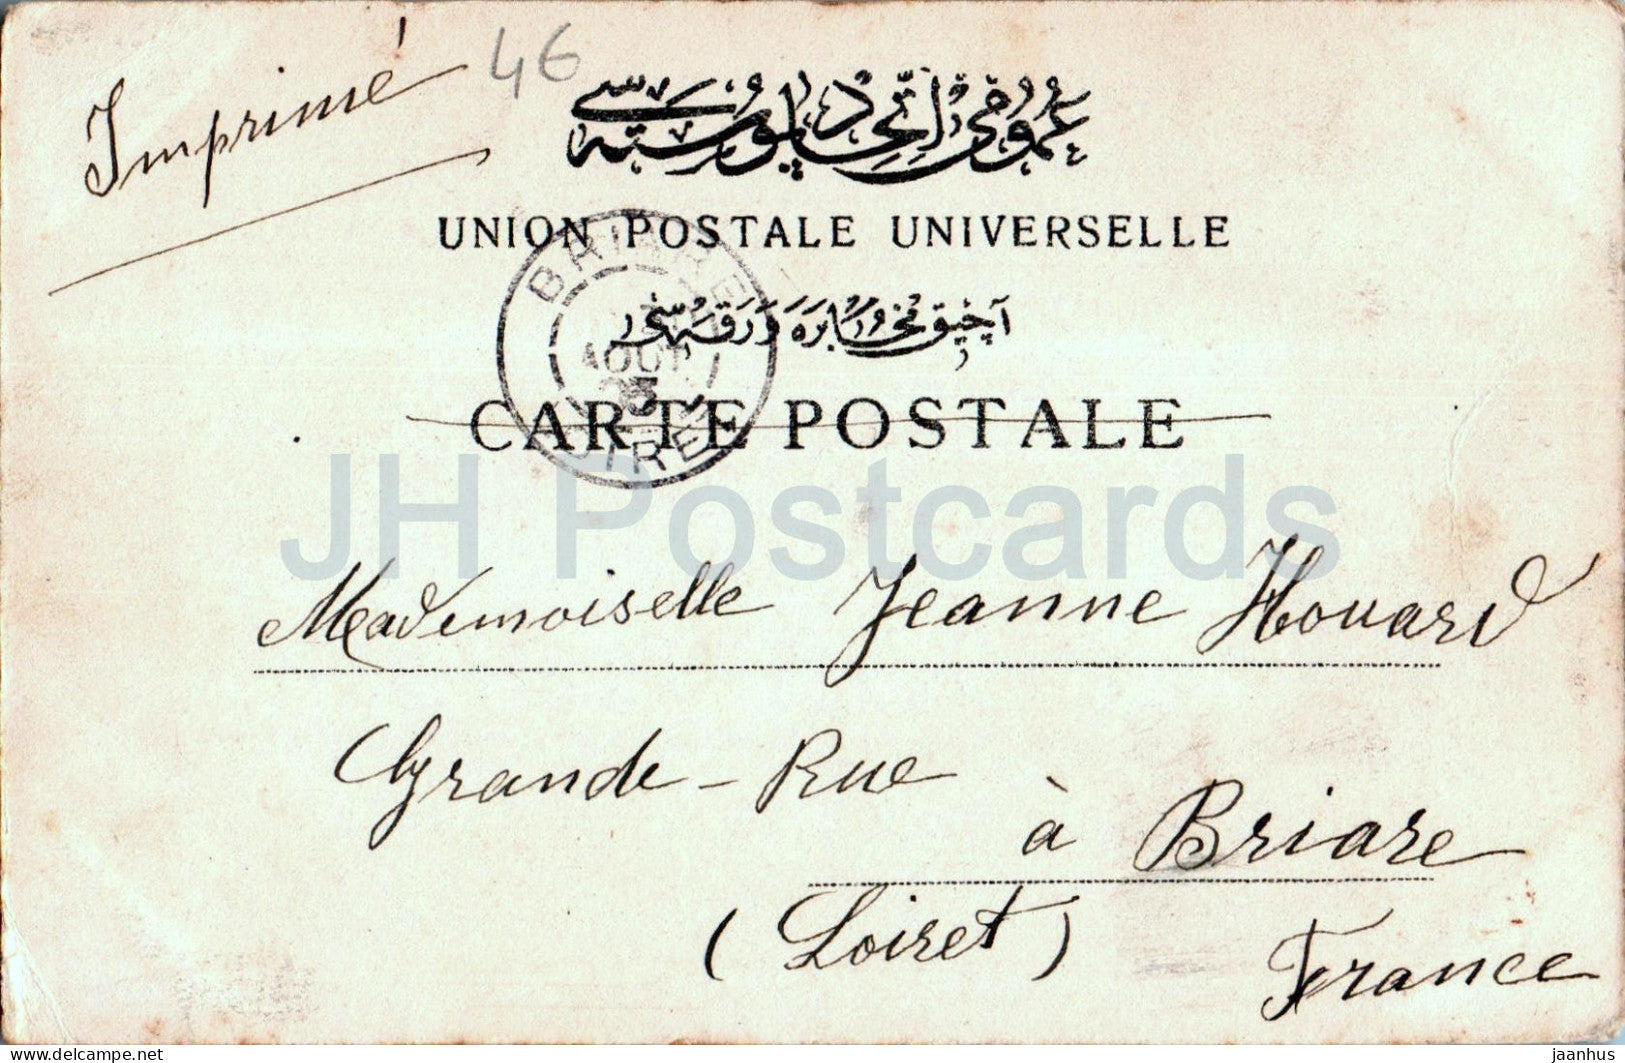 Imprimé
46
عمومى اتحاد پوسته سى
UNION POSTALE UNIVERSELLE
آچيق مخابره ورقه سى
CARTE POSTALE
BRIARE
AOUT
LOIRET
JH Postcards
Mademoiselle Jeanne Houard
Grande-Rue
à Briare
(Loiret)
France
delcampe.net
jaanhus